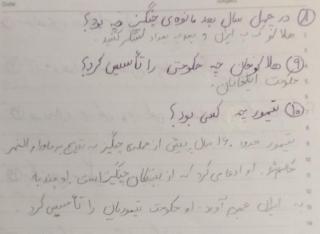 ⑧ در چهل سال بعد مانده‌ی چنگیز چه بود؟
هلاکو به ایران و بغداد لشکر کشید.
⑨ هلاکوخان چه حکومتی را تأسیس کرد؟
حکومت ایلخانان.
⑩ تیمور چه کسی بود؟
تیمور حدود ۱۶۰ سال پس از حمله‌ی چنگیز به ماوراءالنهر
او ادعا می‌کرد که از چنگیز است. او چند بار به
ایران هجوم آورد. او حکومت تیموریان را تأسیس کرد.